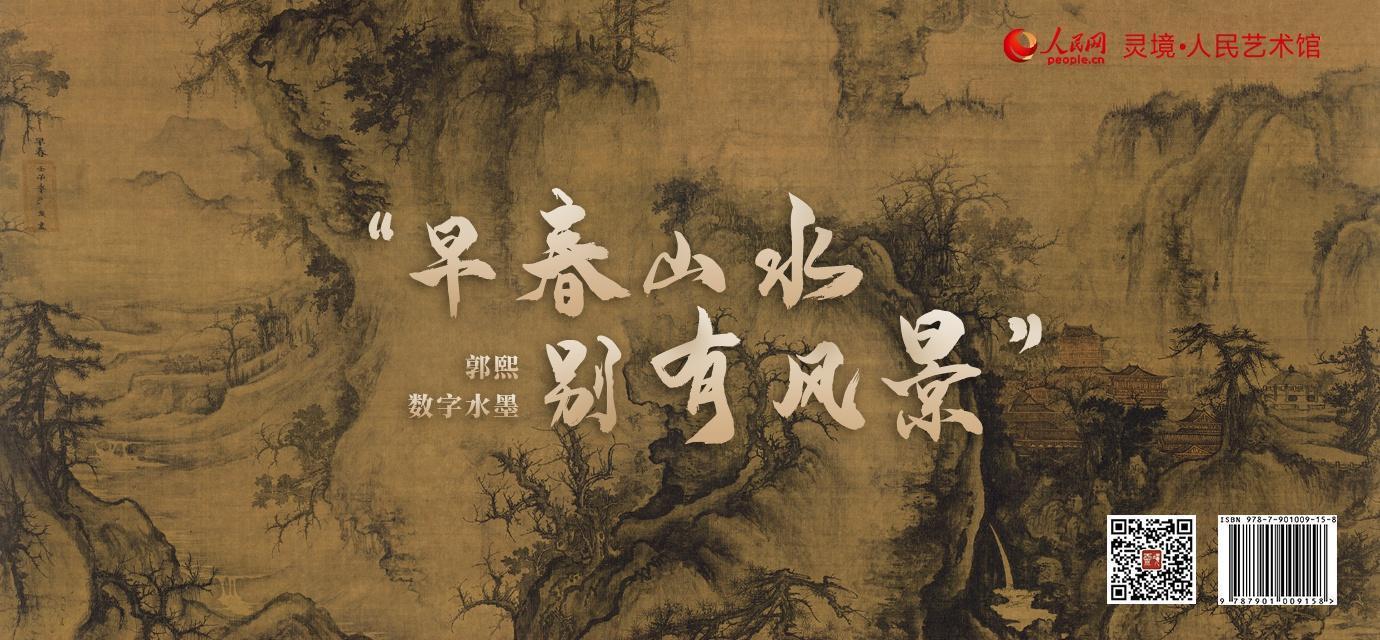 人民网
people.cn
灵境·人民艺术馆
早春
“早春山水
别有风景”
郭熙
数字水墨
ISBN 978-7-901009-15-8
9 787901 009158 >